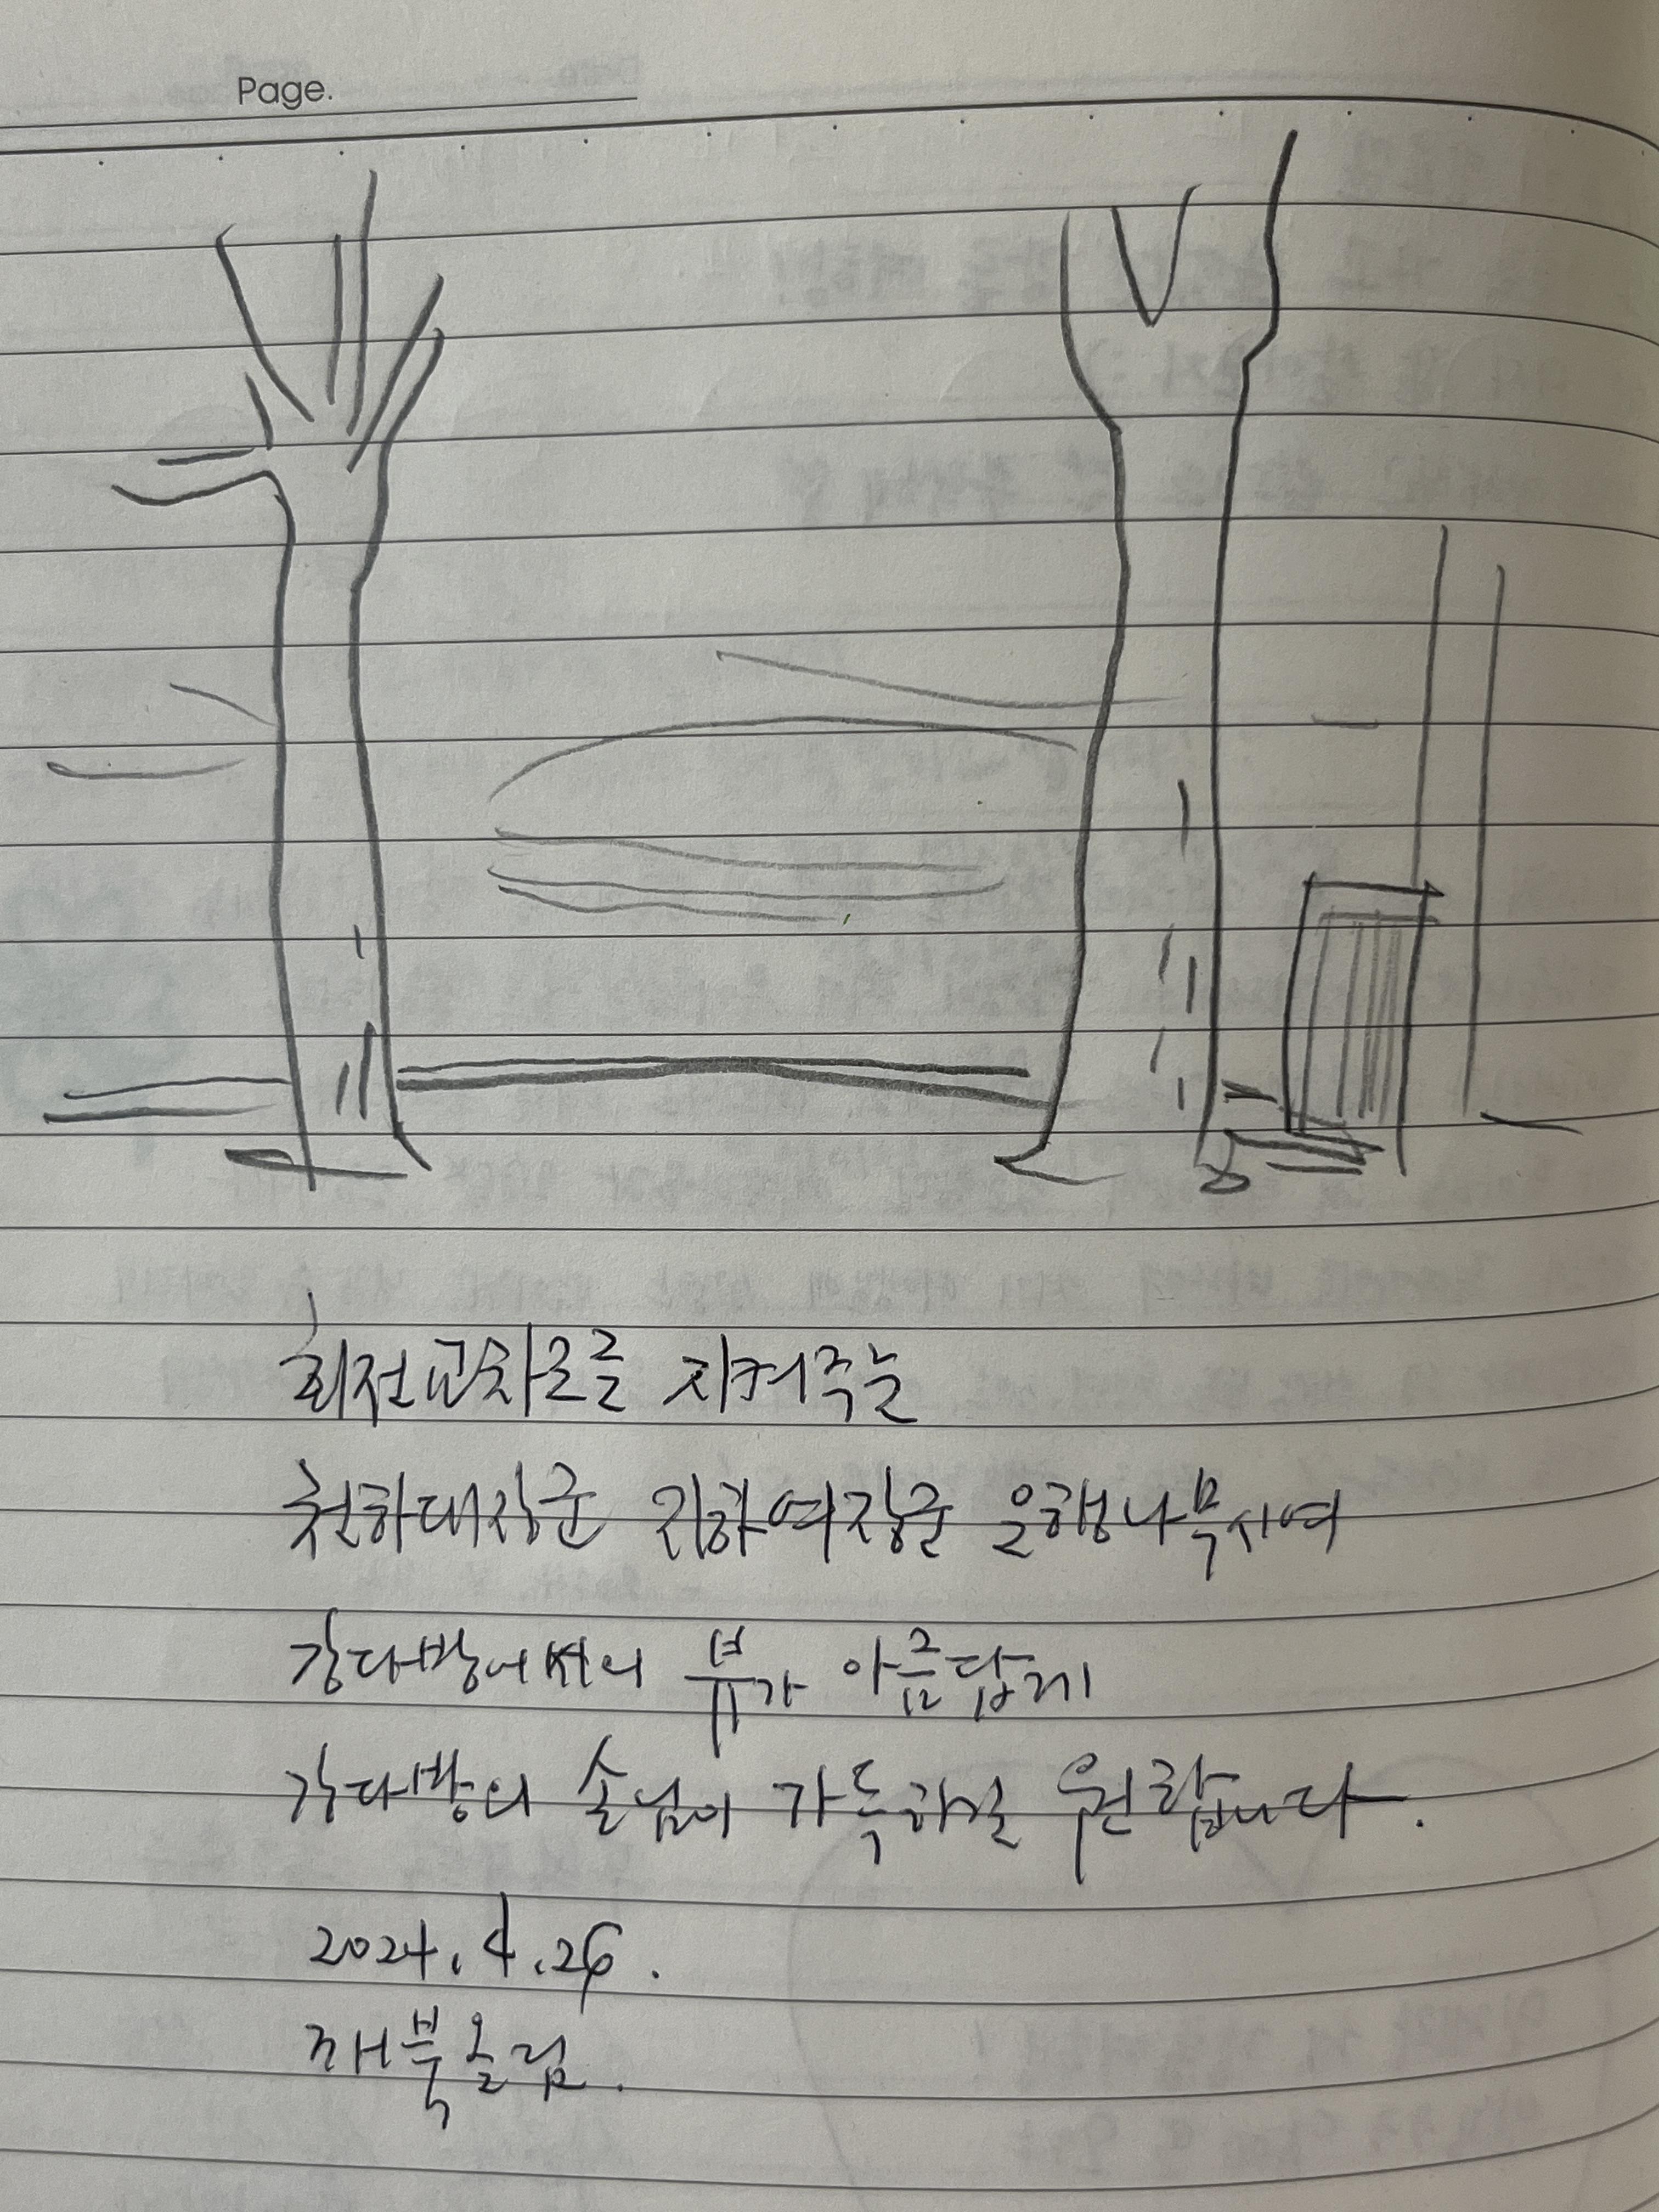 Page.
회전교차로를 지켜주는
천하대장군 지하여장군 은행나무시여
강다방에서의 뷰가 아름답게
강다방의 손님이 가득하길 원합니다.
2024.4.26.
재북올림.